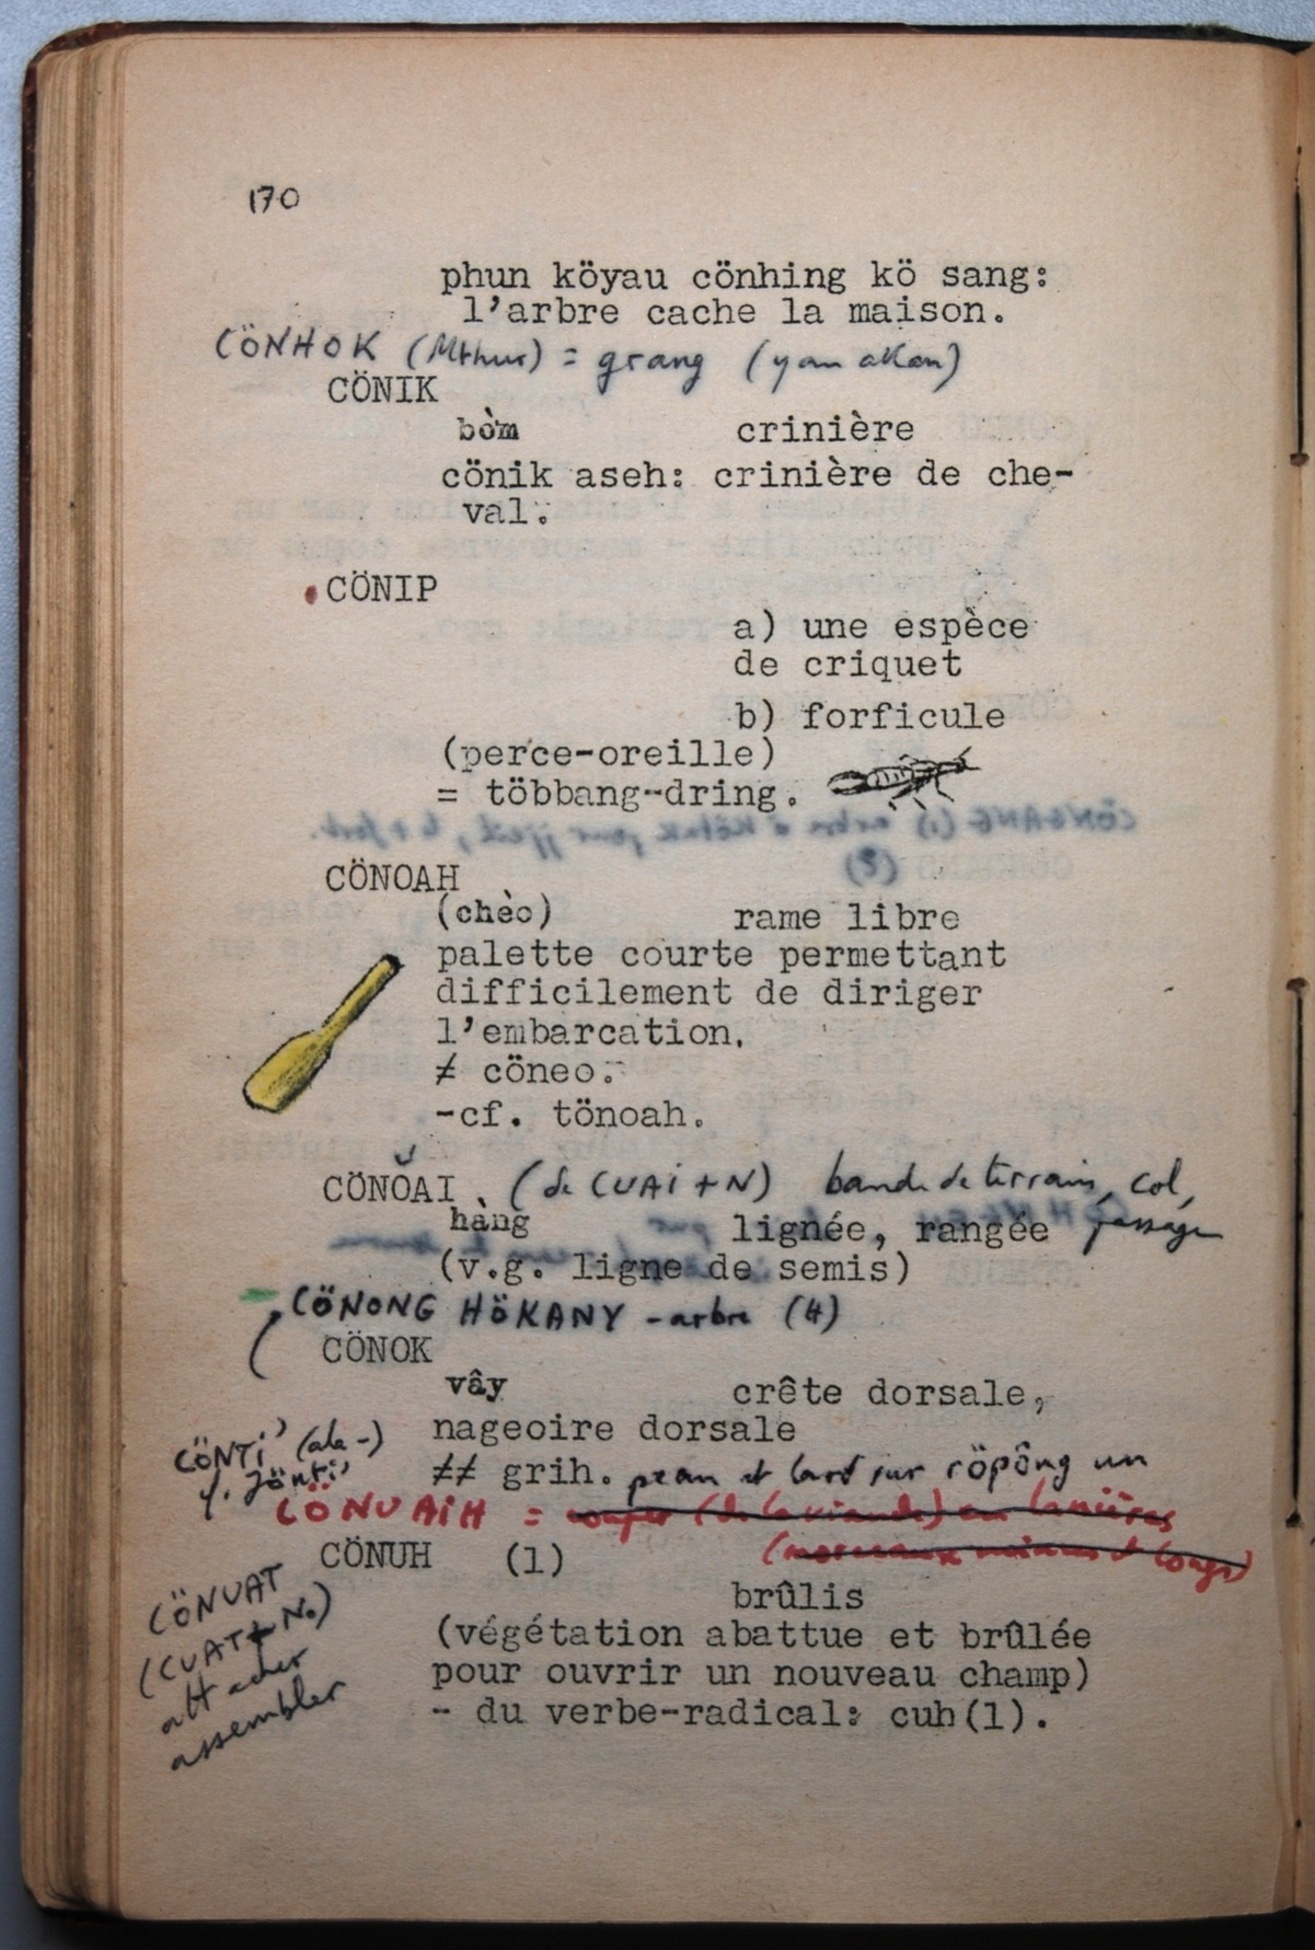 170
phun köyau cönhing kö sang:
l'arbre cache la maison.
CÖNHOK (Mthur) = grang (yan akan)
CÖNIK
bòm crinière
cönik aseh: crinière de che-
val.
CÖNIP
a) une espèce
de criquet
b) forficule
(perce-oreille)
= többang-dring.
CÖNOAH
(chèo) rame libre
palette courte permettant
difficilement de diriger
l'embarcation.
≠ cöneo.
-cf. tönoah.
CÖNOĂI. (de CUAI + N) bande de terrain, col,
hàng lignée, rangée passage
(v.g. ligne de semis)
CÖNONG HÖKANY - arbre (H)
CÖNOK
vây crête dorsale,
nageoire dorsale
CÖNTI' (ala-)
≠≠ grih. peau et lard sur röpông un
CÖNUAIH = couper (de la viande) en lanières
(morceaux minces et longs)
CÖNUH (1)
CÖNUAT
(CUAT + N.)
attacher
assembler
brûlis
(végétation abattue et brûlée
pour ouvrir un nouveau champ)
- du verbe-radical: cuh(1).